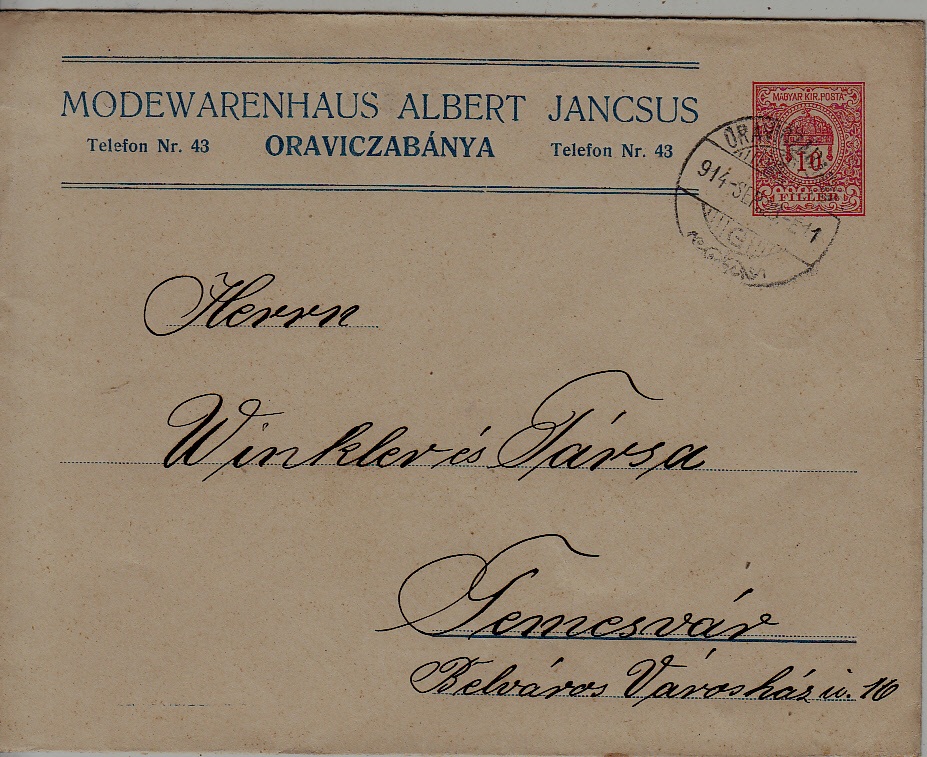 MODEWARENHAUS ALBERT JANCSUS
Telefon Nr. 43 ORAVICZABÁNYA Telefon Nr. 43
MAGYAR KIR. POSTA
10
FILLÉR
914
Herrn
Winkler és Társa
Temesvár
Belváros Városház u. 16